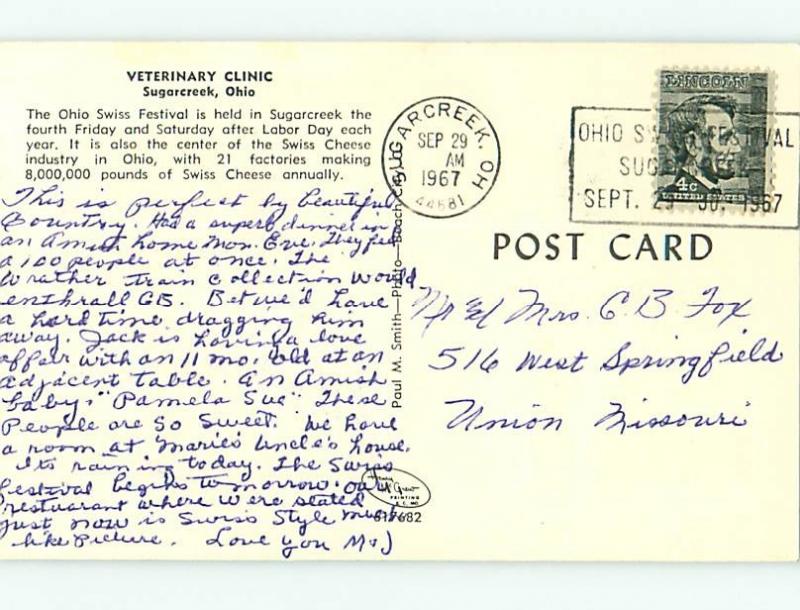 VETERINARY CLINIC
Sugarcreek, Ohio
The Ohio Swiss Festival is held in Sugarcreek the
fourth Friday and Saturday after Labor Day each
year. It is also the center of the Swiss Cheese
industry in Ohio, with 21 factories making
8,000,000 pounds of Swiss Cheese annually.
This is perfect by beautiful
Country. Had a superb dinner in
an Amish home Mon. Eve. They feed
a 100 people at once. The
Wrather Train Collection would
enthrall GB. But we'd have
a hard time dragging him
away. Jack is having a love
affair with an 11 mo. old at an
adjacent table. An Amish
baby. "Pamela Sue" These
People are so sweet. We have
a room at Marie's Uncle's house.
Its raining today. The Swiss
Festival begins tomorrow. our
restuarant where were seated
just now is Swiss Style much
like picture. Love you M&J
Paul M. Smith—Photo—Beach City,
PRINTING
K.C. MO.
817682
SUGARCREEK, OH
SEP 29
AM
1967
44681
OHIO SWISS FESTIVAL
SUGARCREEK
SEPT. 29 30, 1967
LINCOLN
4c
UNITED STATES
POST CARD
Mr & Mrs. C. B. Fox
516 West Springfield
Union Missouri